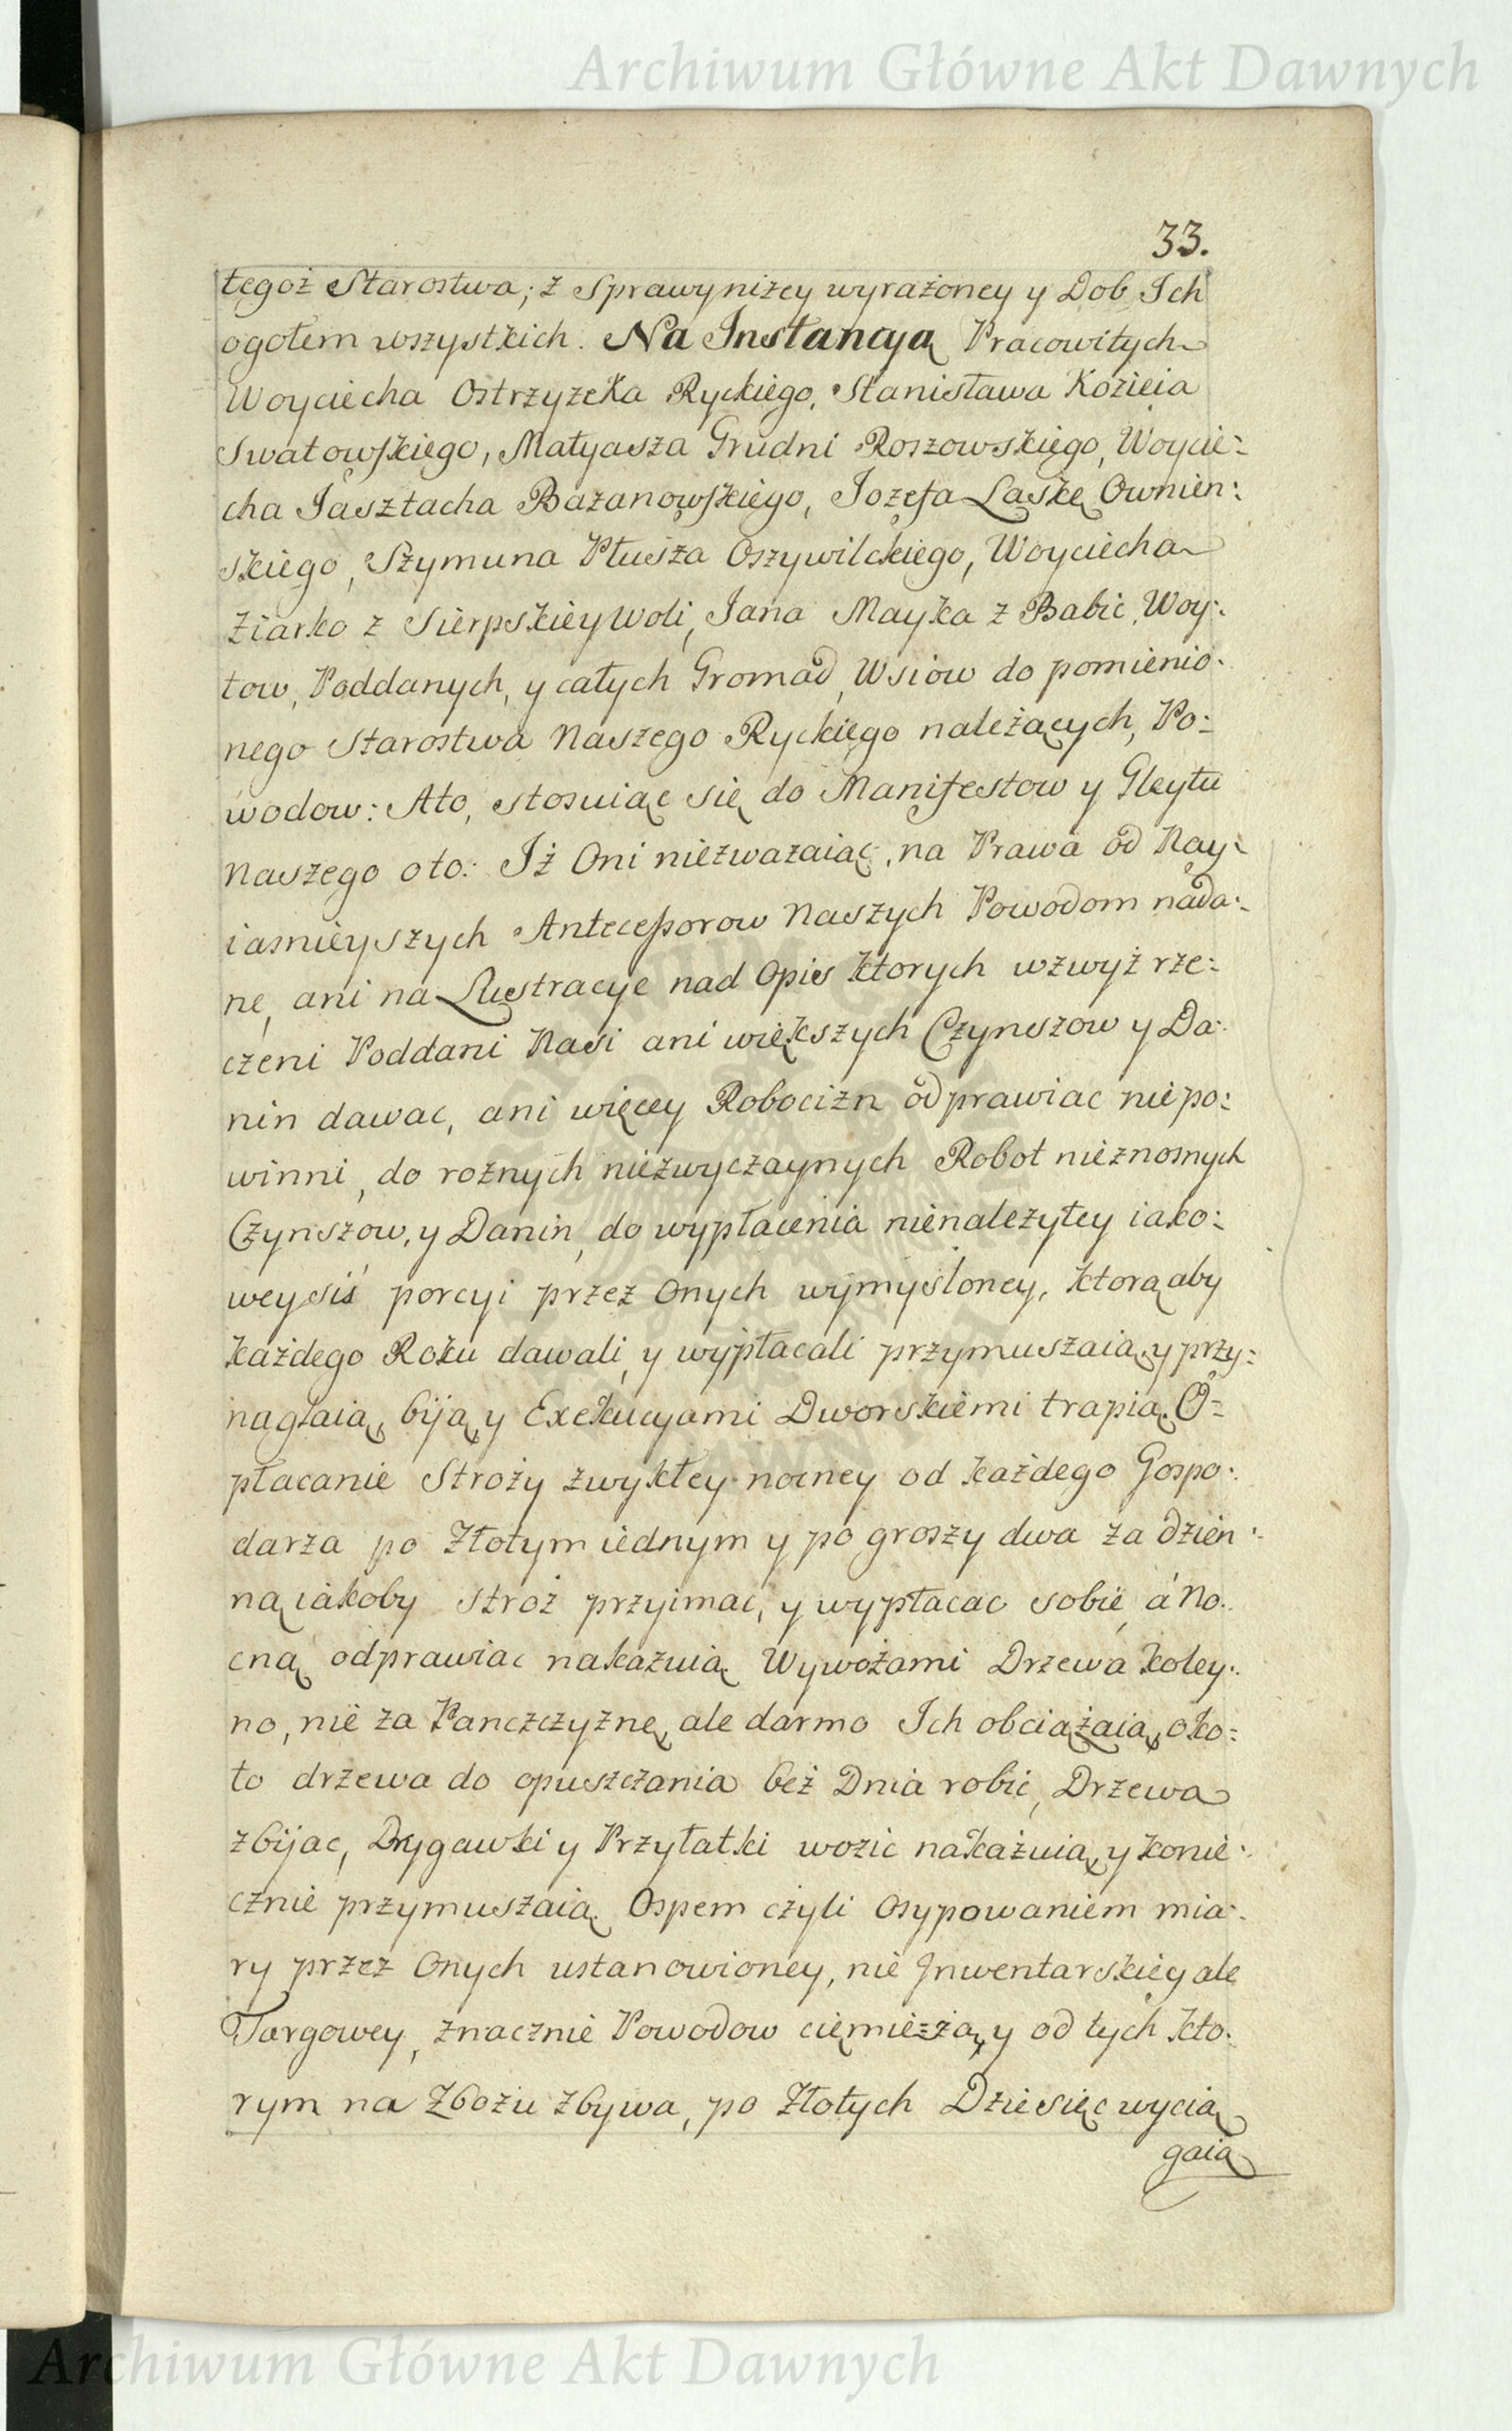 Archiwum Główne Akt Dawnych
33.
tegoż Starostwa; z Sprawy niżey wyrażoney y Dob Ich
ogołem wszystkich. Na Instancyą Pracowitych
Woyciecha Ostrzyżka Ryckiego, Stanisława Kozieia
Swatowskiego, Matyasza Grudni Roszowskiego, Woycie=
cha Jasztacha Bazanowskiego, Jozefa Laskę Ownien=
skiego, Szymuna Ptusza Oszywilckiego, Woyciecha
Ziarko z Sierpskiey Woli, Jana Mayka z Babic, Woy=
tow, Poddanych, y całych Gromad, Wsiow do pomienio=
nego Starostwa Naszego Ryckiego należących, Po=
wodow: Ato, stosuiąc się do Manifestow y Gleytu
Naszego oto: Iż Oni niezważaiąc, na Prawa od Nay=
iasnieyszych Antecessorow Naszych Powodom nada=
ne, ani na Lustracye nad Opis ktorych wzwyż rze=
czeni Poddani Nasi ani większych Czynszow y Da=
nin dawac, ani więcey Robocizn odprawiac niepo=
winni, do rożnych niezwyczaynych Robot nieznosnych
Czynszow, y Danin, do wypłacenia nienależytey iako=
weysiś porcyi przez Onych wymysloney, ktorą aby
każdego Roku dawali, y wypłacali przymuszaią, y przy=
naglaią, biją, y Exekucyami Dworskiemi trapią. O=
płacanie Stroży zwykłey nocney od każdego Gospo=
darza po Złotym iednym y po groszy dwa za dzien=
ną iakoby stroż przyimac, y wypłacac sobie, á No=
cną odprawiac nakazuią. Wywożami Drzewa koley=
no, nie za Panczczyznę, ale darmo Ich obciążaią, oko=
ło drzewa do opuszczania bez Dnia robic, Drzewa
zbijac, Drygawki y Przytatki wozic nakażuią, y konie=
cznie przymuszaią. Ospem czyli Osypowaniem mia=
ry przez Onych ustanowioney, nie Inwentarskiey ale
Targowey, znacznie Powodow ciemiężą, y od tych kto=
rym na Zbożu zbywa, po Złotych Dziesięc wycią
gaią
Archiwum Główne Akt Dawnych